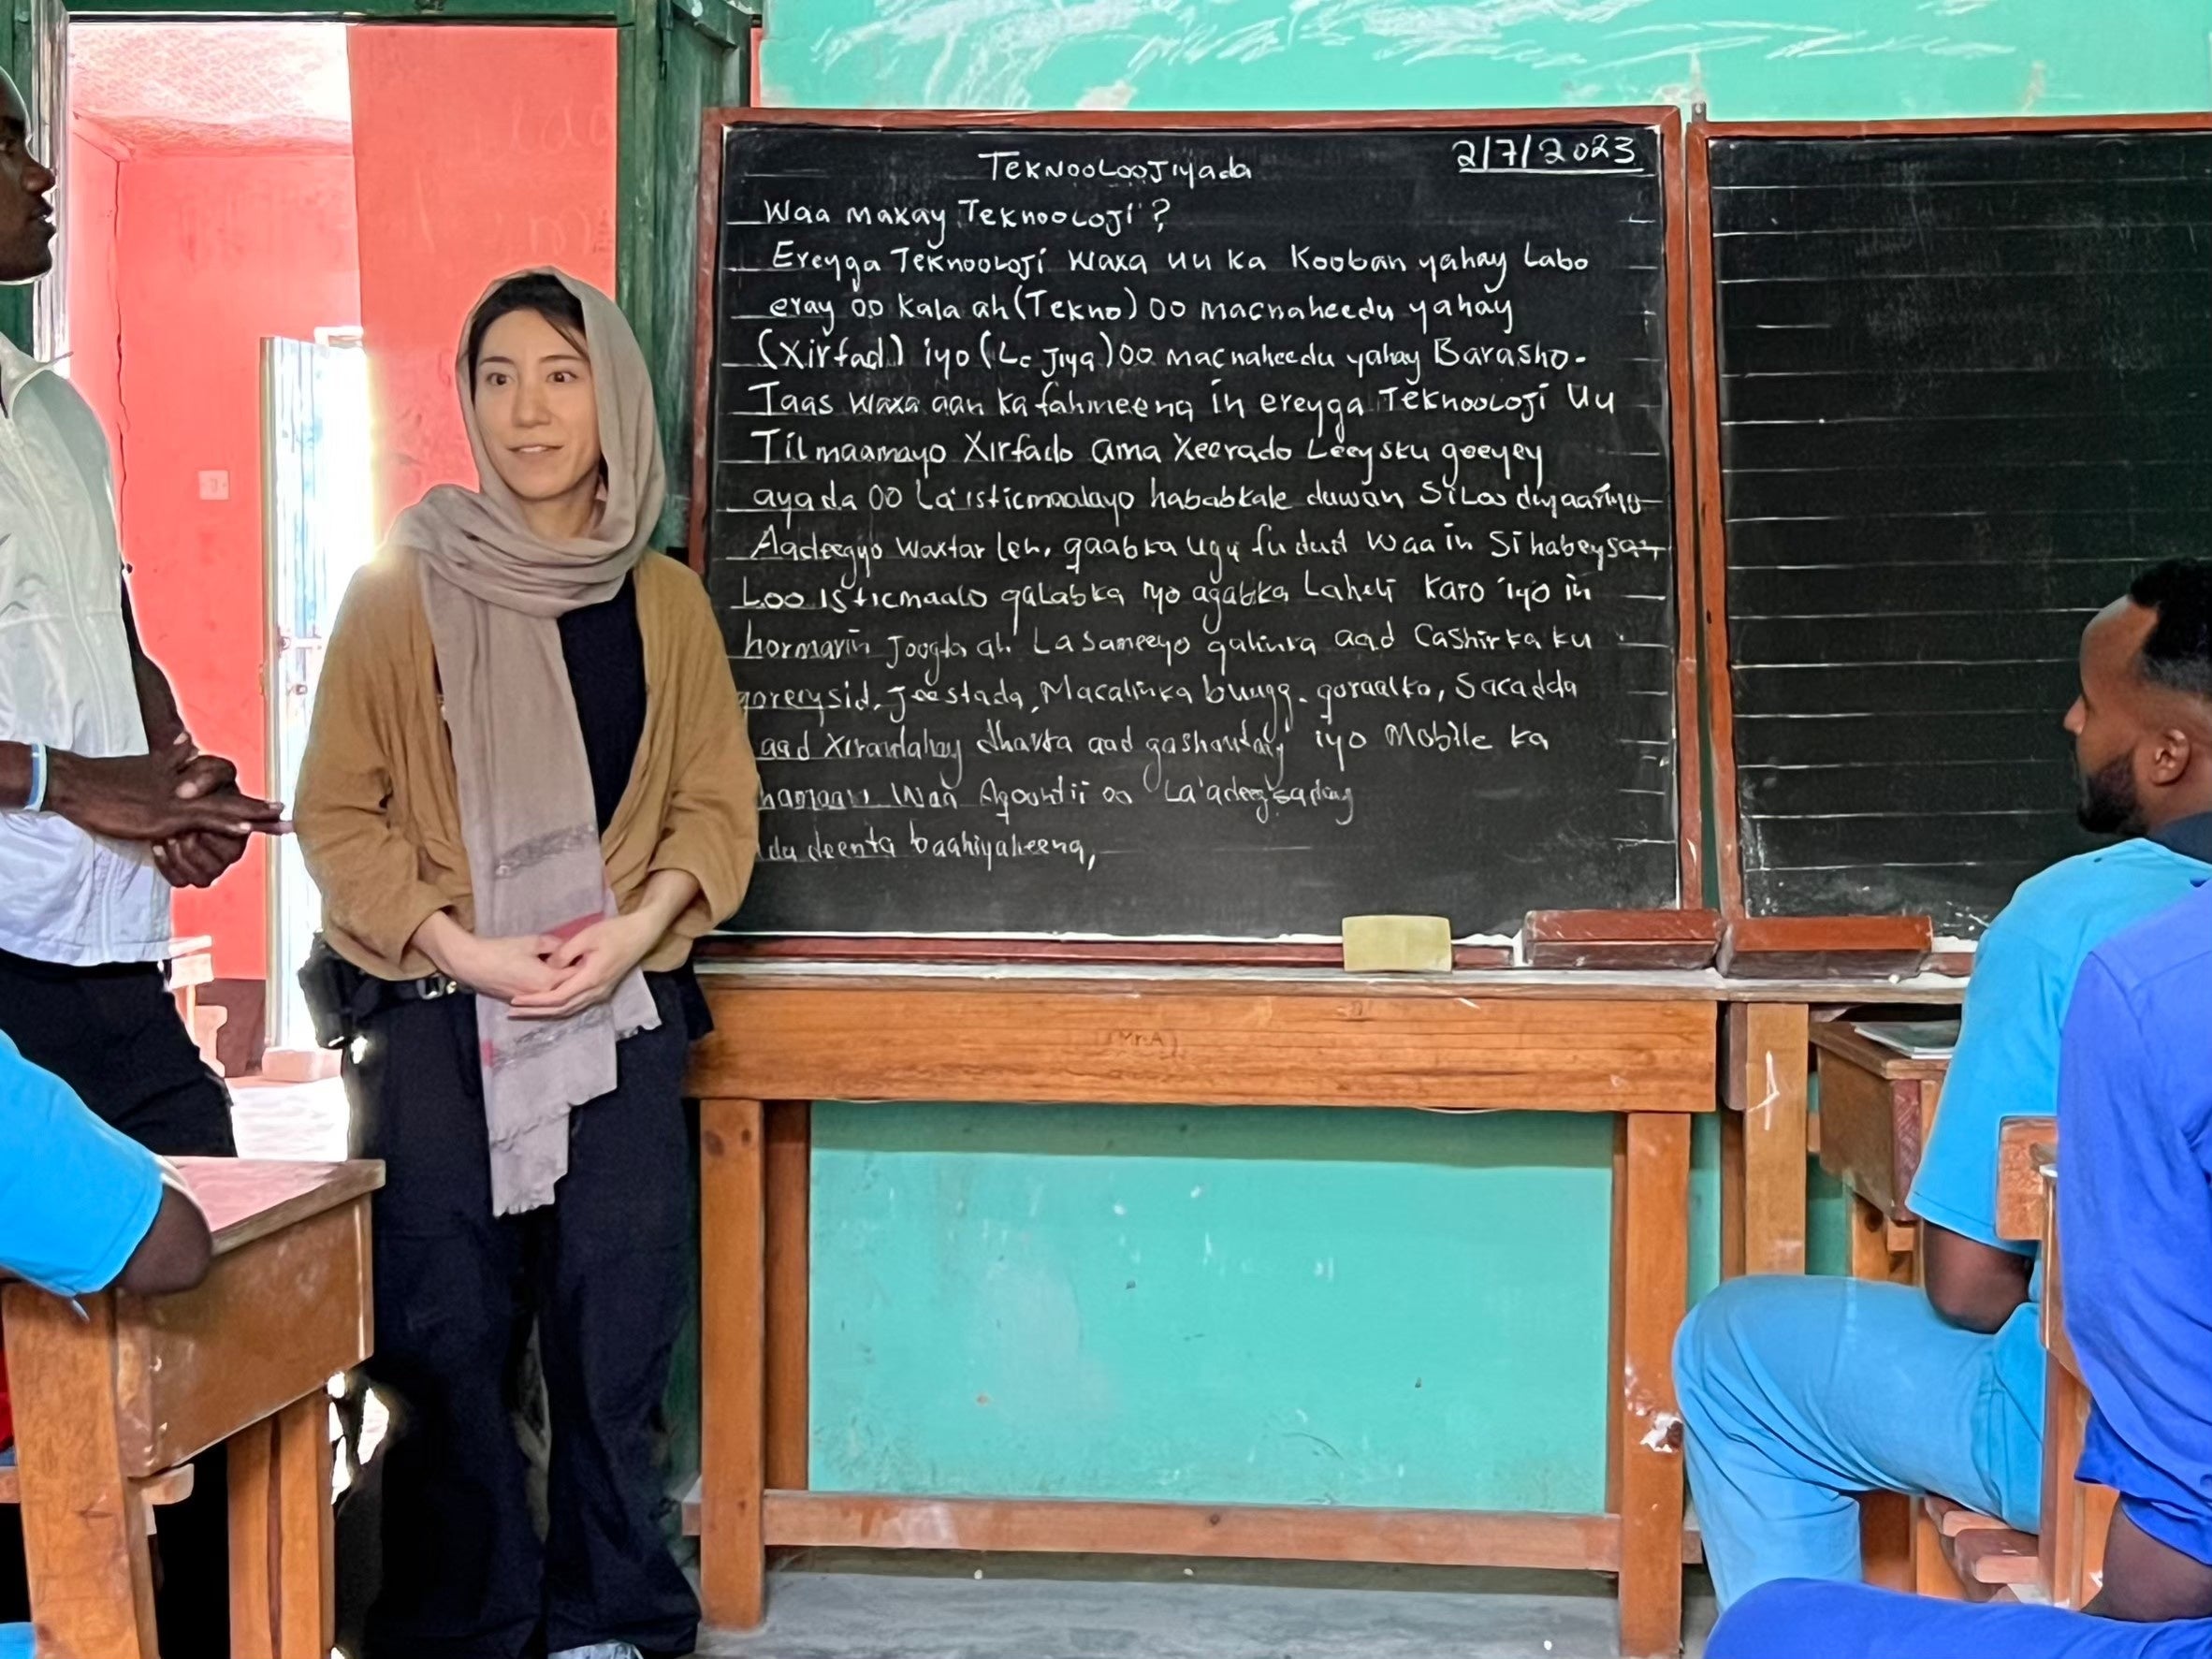 Teknooloojiyada
2/7/2023
Waa maxay Teknooloji?
Ereyga Teknooloji waxa uu ka Kooban yahay Labo
eray oo kala ah (Tekno) oo macnaheedu yahay
(Xirfad) iyo (Lo Jiya) oo macnaheedu yahay Barasho.
Taas waxa aan ka fahmeena in ereyga Teknooloji Uu
Tilmaamayo Xirfado ama Xeerado Leeysku geeyey
ayada oo La'isticmaalayo hababkale duwan si Loo diyaariyo
Aadeegyo waxtar leh, qaabka ugu fudud waa in si habeysan
Loo isticmaalo qalabka iyo agabka Laheli karo iyo in
hormarin Joogto ah La sameeyo qalinka aad Casharka ku
qoreysid, Jeestada, Macalinka buugg. qoraalka, Sacadda
aad Xirantahay dharka aad gashantay iyo Mobile ka
waa Aqoontii oo La'adeegsaday
baahiyaheena,
(Mr.A)